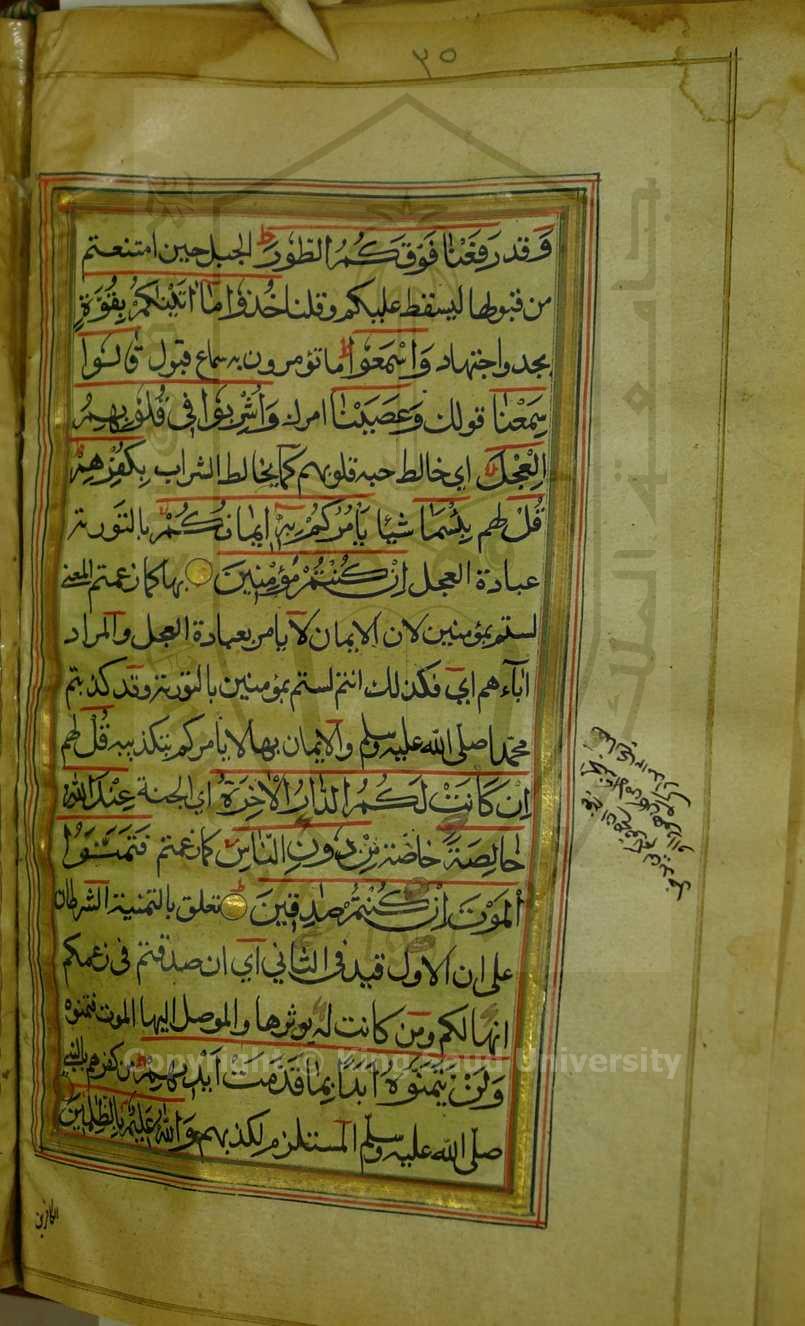 ٢٥
وَ قد رَفَعْنَا فَوْقَكُمُ الطُّوْرَ الجبل حين امتنعتم
من قبولها ليسقط عليكم وقلنا خُذُوْا مَا اٰتَيْنٰكُمْ بِقُوَّةٍ
بجد واجتهاد وَاسْمَعُوْا ما تؤمرون به سماع قبول قَالُوْا
سَمِعْنَا قولك وَعَصَيْنَا امرك وَاُشْرِبُوْا فِي قُلُوْبِهِمُ
الْعِجْلَ اي خالط حبه قلوبهم كما يخالط الشراب بِكُفْرِهِمْ
قُلْ لهم بِئْسَمَا شيئا يَأْمُرُكُمْ بِهٖ اِيْمَانُكُمْ بالتورية
عبادة العجل اِنْ كُنْتُمْ مُؤْمِنِيْنَ بها كما زعمتم المعنى
لستم بمؤمنين لان الايمان لا يامر بعبادة العجل والمراد
اباءهم اي فكذلك انتم لستم بمؤمنين بالتورية وقد كذبتم
محمدا صلى الله عليه وسلم والايمان بها لا يامركم بتكذيبه قُلْ لهم
اِنْ كَانَتْ لَكُمُ الدَّارُ الْاٰخِرَةُ اي الجنة عِنْدَ اللّٰهِ
خَالِصَةً خاصة مِنْ دُوْنِ النَّاسِ كما زعمتم فَتَمَنَّوُا
الْمَوْتَ اِنْ كُنْتُمْ صٰدِقِيْنَ تعلق بالتمنية الشرطان
على ان الاول قيد في الثاني اي ان صدقتم في زعمكم
انها لكم ومن كانت له يوثرها والموصل اليها الموت فتمنوه
وَلَنْ يَتَمَنَّوْهُ اَبَدًا بِمَا قَدَّمَتْ اَيْدِيْهِمْ من كفرهم بالنبي
صلى الله عليه وسلم المستلزم لكذبهم وَاللّٰهُ عَلِيْمٌ بِالظّٰلِمِيْنَ
الكافرين
جامعة الملك
Copyright © King Saud University